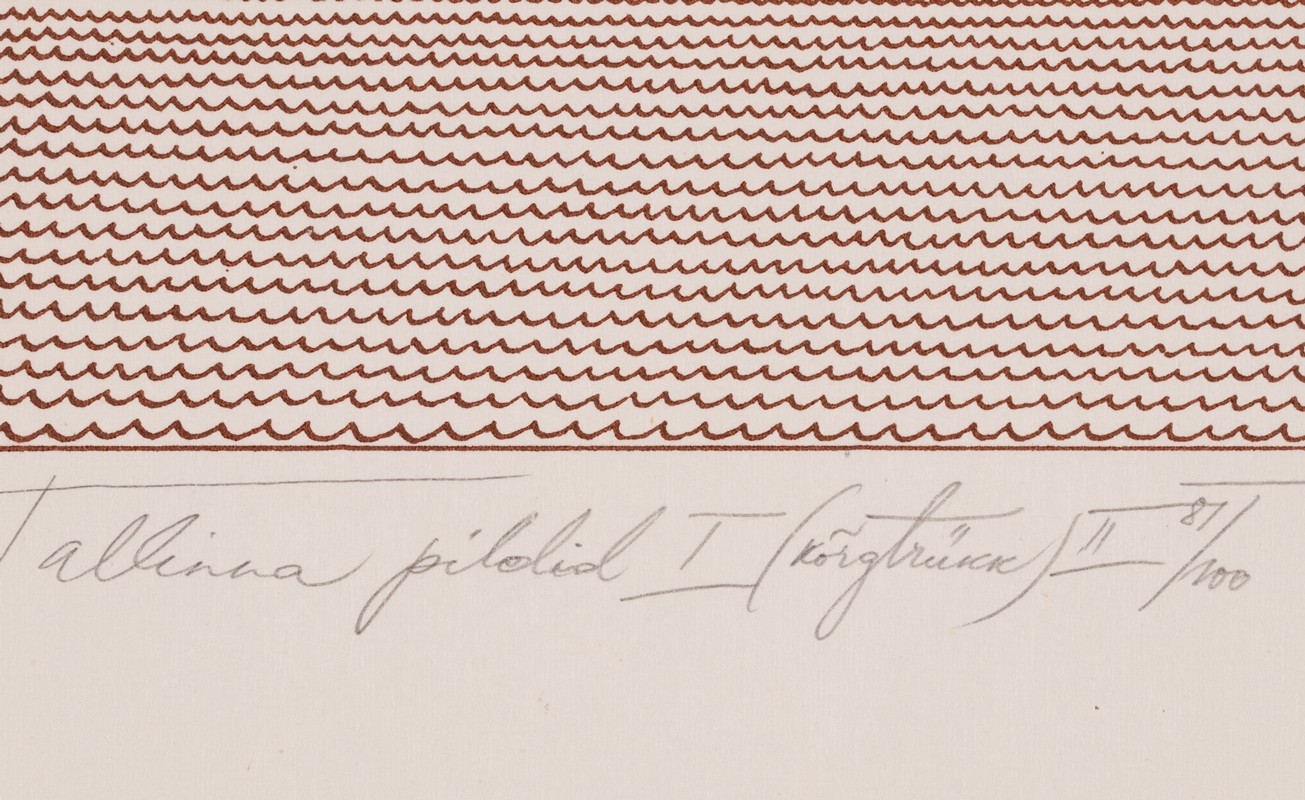 Tallinna pildid I (kõrgtrükk) II 87/100